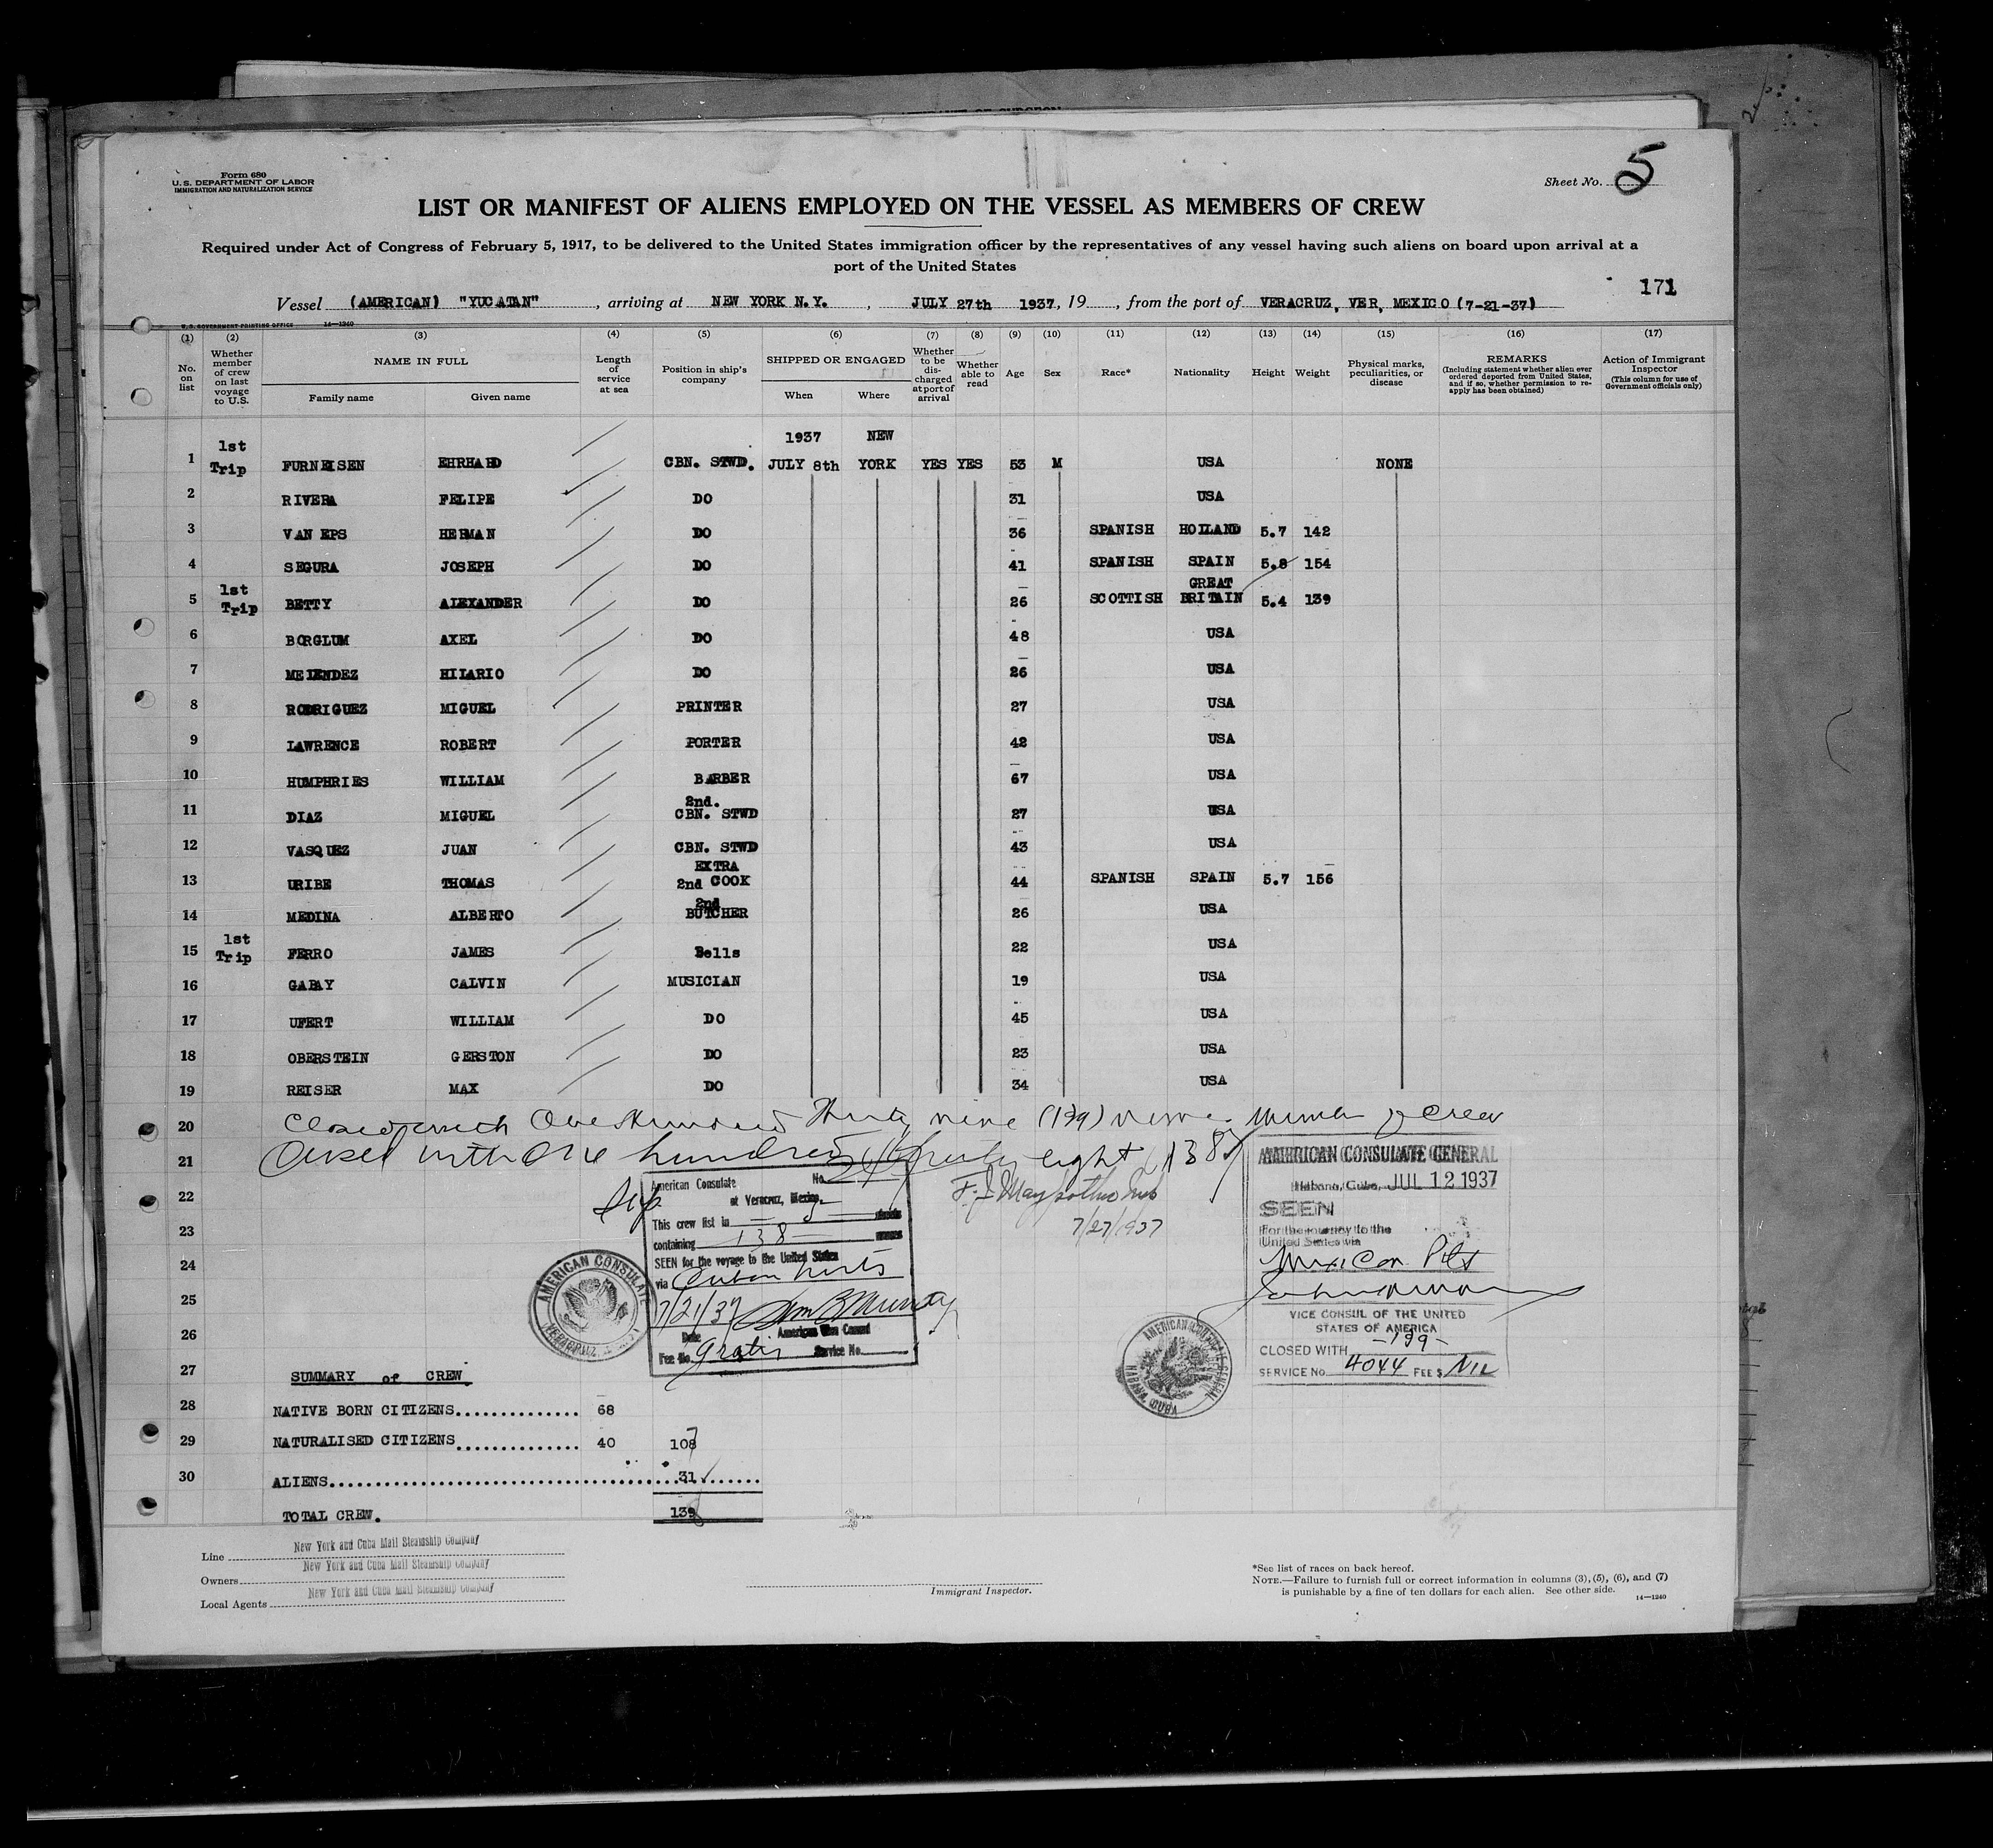 Form 680
U.S. DEPARTMENT OF LABOR
IMMIGRATION AND NATURALIZATION SERVICE
Sheet No. 5
LIST OR MANIFEST OF ALIENS EMPLOYED ON THE VESSEL AS MEMBERS OF CREW
Required under Act of Congress of February 5, 1917, to be delivered to the United States immigration officer by the representatives of any vessel having such aliens on board upon arrival at a
port of the United States
171
Vessel (AMERICAN) "YUCATAN", arriving at NEW YORK N.Y., JULY 27th 1937, 19, from the port of VERACRUZ, VER, MEXICO (7-21-37)
U.S. GOVERNMENT PRINTING OFFICE 14—1240
(1) No. on list
(2) Whether member of crew on last voyage to U.S.
(3) NAME IN FULL Family name Given name
(4) Length of service at sea
(5) Position in ship's company
(6) SHIPPED OR ENGAGED When Where
(7) Whether to be discharged at port of arrival
(8) Whether able to read
(9) Age
(10) Sex
(11) Race*
(12) Nationality
(13) Height
(14) Weight
(15) Physical marks, peculiarities, or disease
(16) REMARKS (Including statement whether alien ever ordered deported from United States, and if so, whether permission to re-apply has been obtained)
(17) Action of Immigrant Inspector (This column for use of Government officials only)
1 1st Trip FURNEISEN EHRHARD CBN. STWD. 1937 JULY 8th NEW YORK YES YES 53 M USA NONE
2 RIVERA FELIPE DO 31 USA
3 VAN EPS HERMAN DO 36 SPANISH HOLLAND 5.7 142
4 SEGURA JOSEPH DO 41 SPANISH SPAIN 5.8 154
5 1st Trip BETTY ALEXANDER DO 26 SCOTTISH GREAT BRITAIN 5.4 139
6 BORGLUM AXEL DO 48 USA
7 MELENDEZ HILARIO DO 26 USA
8 RODRIGUEZ MIGUEL PRINTER 27 USA
9 LAWRENCE ROBERT PORTER 42 USA
10 HUMPHRIES WILLIAM BARBER 67 USA
11 DIAZ MIGUEL 2nd. CBN. STWD 27 USA
12 VASQUEZ JUAN CBN. STWD 43 USA
13 URIBE THOMAS EXTRA 2nd COOK 44 SPANISH SPAIN 5.7 156
14 MEDINA ALBERTO 2nd BUTCHER 26 USA
15 1st Trip FERRO JAMES Bells 22 USA
16 GABAY CALVIN MUSICIAN 19 USA
17 UFERT WILLIAM DO 45 USA
18 OBERSTEIN GERSTON DO 23 USA
19 REISER MAX DO 34 USA
20 Closed with One Hundred Thirty nine (139) Members of Crew
21 Closed with One hundred thirty eight (138)
22
23
24
25
26
7/27/1937
American Consulate No.
at Veracruz, Mexico.
This crew list in 5 sheets
containing 138 names
SEEN for the voyage to the United States
via Cuban Ports
7/21/37
Date American Vice Consul
Fee No. gratis Service No.
AMERICAN CONSULATE VERACRUZ
AMERICAN CONSULATE GENERAL
Habana, Cuba, JUL 12 1937
SEEN
For the journey to the
United States via
Mexican Pts
VICE CONSUL OF THE UNITED
STATES OF AMERICA
CLOSED WITH -139-
SERVICE No. 4044 FEE $ NIL
AMERICAN CONSULATE GENERAL HABANA, CUBA
27 SUMMARY of CREW
28 NATIVE BORN CITIZENS 68
29 NATURALISED CITIZENS 40 108 7
30 ALIENS 31
TOTAL CREW. 139 8
Line New York and Cuba Mail Steamship Company
Owners New York and Cuba Mail Steamship Company
Local Agents New York and Cuba Mail Steamship Company
Immigrant Inspector.
*See list of races on back hereof.
NOTE.—Failure to furnish full or correct information in columns (3), (5), (6), and (7)
is punishable by a fine of ten dollars for each alien. See other side.
14—1240